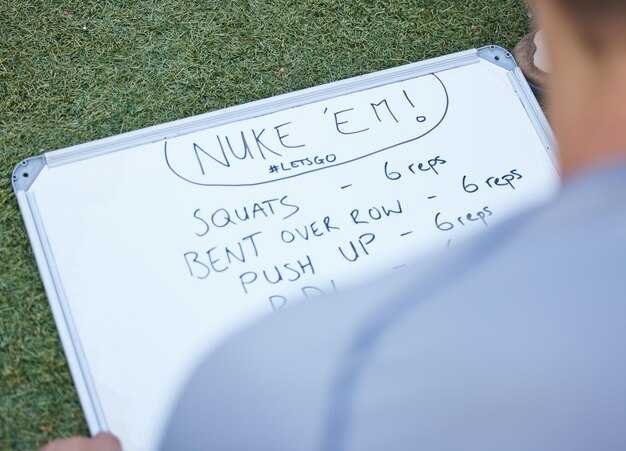 NUKE 'EM!
#LETSGO
SQUATS - 6 reps
BENT OVER ROW - 6 reps
PUSH UP - 6 reps